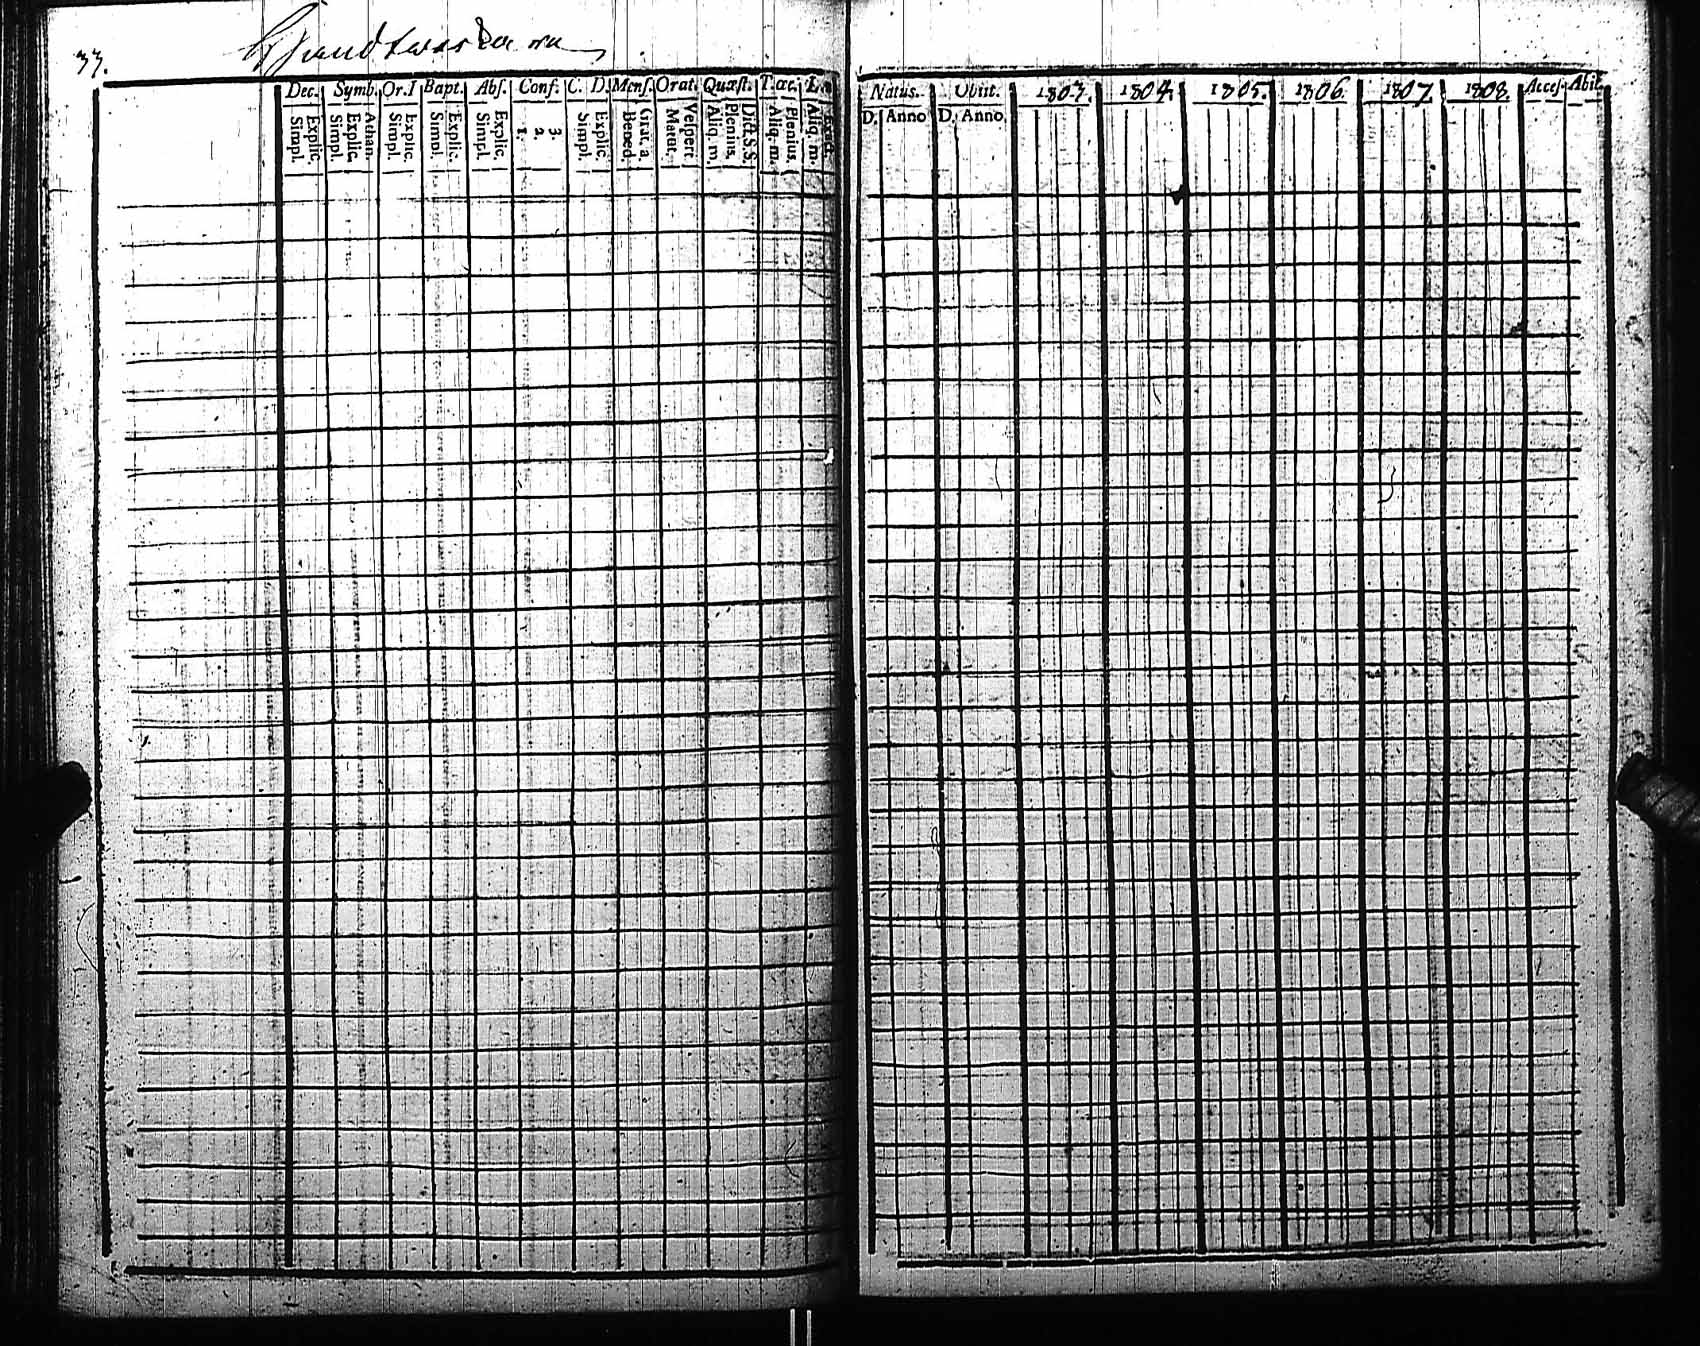 33.
Dec. Symb. Or.I Bapt. Abs. Conf. C. D. Mens. Orat. Quæst. T. œc.
Simpl. Explic. Simpl. Explic. Athan. Simpl. Explic. Simpl. Explic. Simpl. Explic. 1. 2. 3. Simpl. Explic. Bened. Grat. a. Matut. Vespert. Aliq. m. Plenius. Dict.S.S. Aliq. m. Plenius. Aliq. m.
Natus. Obiit. 1803. 1804. 1805. 1806. 1807. 1808. Acces. Abit.
D. Anno D. Anno.